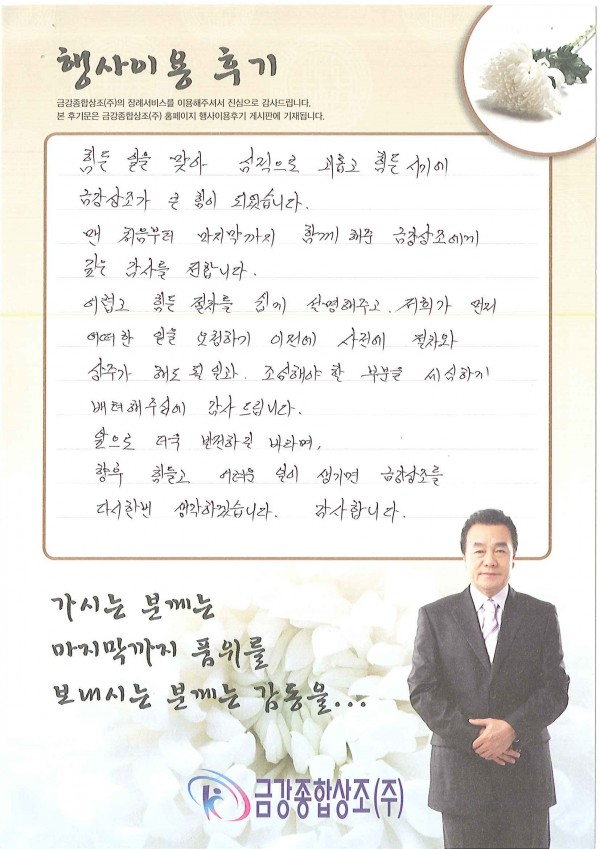 행사이용 후기
금강종합상조(주)의 장례서비스를 이용해주셔서 진심으로 감사드립니다.
본 후기문은 금강종합상조(주) 홈페이지 행사이용후기 게시판에 기재됩니다.
힘든 일을 맞아 심적으로 괴롭고 힘든 시기에
금강상조가 큰 힘이 되었습니다.
맨 처음부터 마지막까지 함께 해준 금강상조에게
깊은 감사를 전합니다.
어렵고 힘든 절차를 쉽게 설명해주고, 저희가 먼저
어떠한 일을 요청하기 이전에 사전에 절차와
상주가 해도 될 일과 조심해야 할 부분을 세심하게
배려해주심에 감사드립니다.
앞으로 더욱 발전하길 바라며,
향후 힘들고 어려운 일이 생기면 금강상조를
다시한번 생각하겠습니다. 감사합니다.
가시는 분께는
마지막까지 품위를
보내시는 분께는 감동을...
금강종합상조(주)